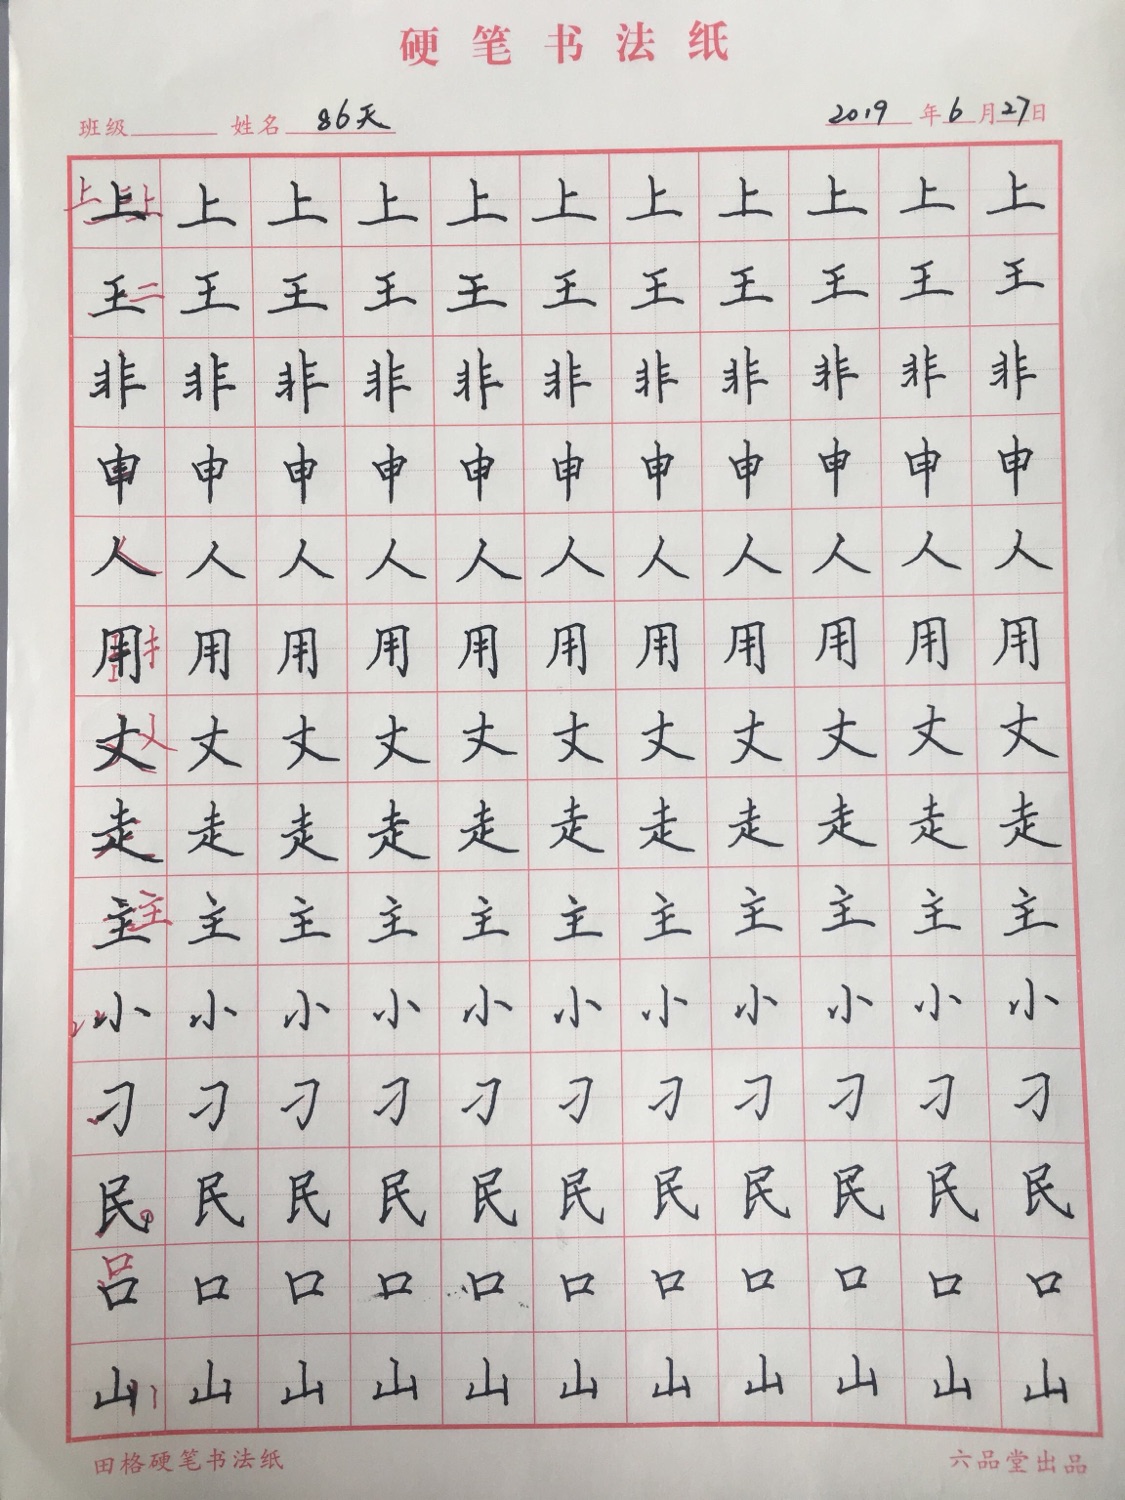 硬笔书法纸
班级 姓名 86天 2019年6月27日
上上上上上上上上上上上
王二王王王王王王王王王王
非非非非非非非非非非非
申申申申申申申申申申申
人人人人人人人人人人人
用用用用用用用用用用用
丈丈丈丈丈丈丈丈丈丈丈
走走走走走走走走走走走
主主主主主主主主主主主主
小小小小小小小小小小小
刁刁刁刁刁刁刁刁刁刁刁
民民民民民民民民民民民
口口口口口口口口口口口口
山山山山山山山山山山山
田格硬笔书法纸 六品堂出品